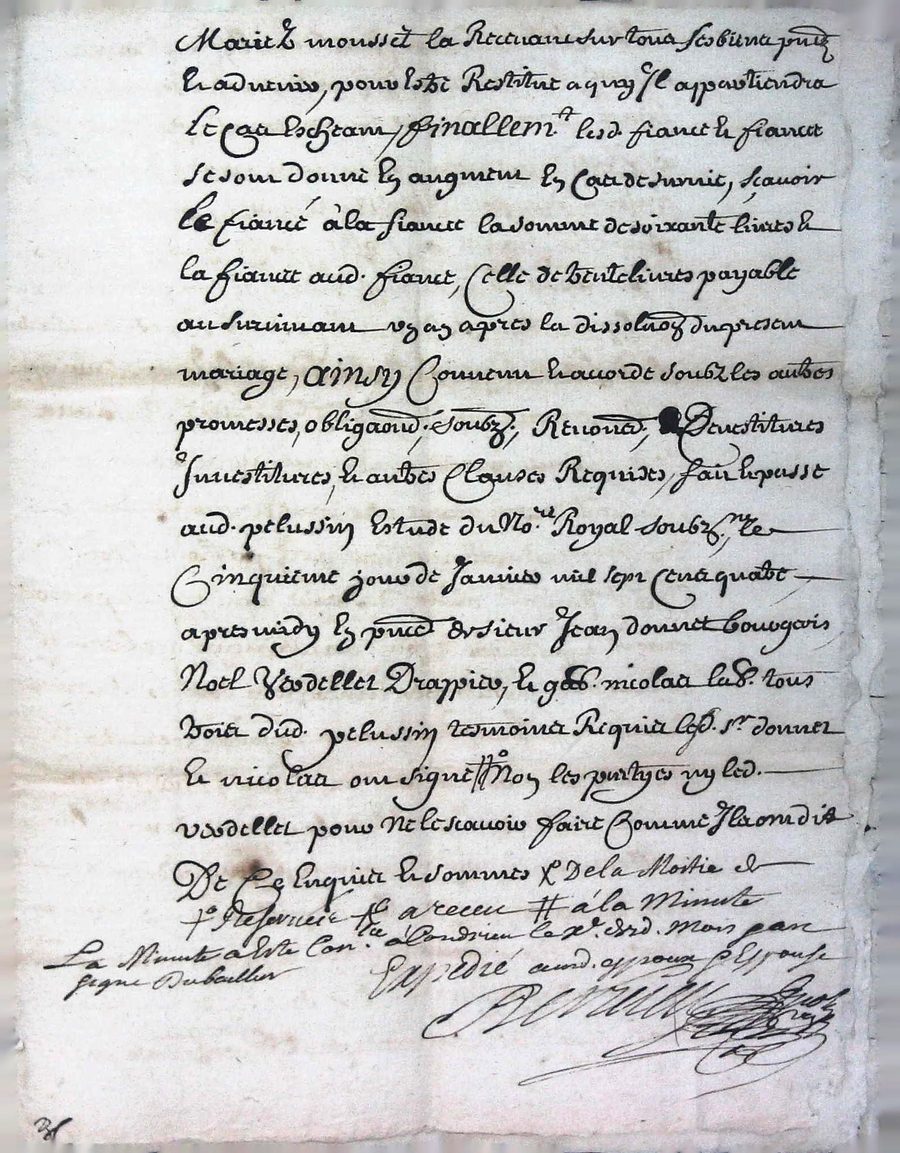 Mariez mousset la Recevant sur tous ses biens pntz
et advenir, pour estre Restitue a quy Il appartiendra
le Cas escheant, finallem.t lesd. fiance et fiancee
se sont donne en augment en Cas de survie, sçavoir
le fiancé à la fiancee la somme de soixante livres et
la fiancee aud. fiance, Celle de trente livres payable
au survivant un an apres la dissolu͠on du present
mariage, ainsy Convenu et acorde soubz les autres
promesses, obliga͠ond., soubz., Renond., Devestitures
Investitures, et autres Clauses Requises, fait et passe
aud. pelussin Estude du No.re Royal soubz.né, le
Cinquieme jour de Janvier mil sept Cens quatre
apres midy en pnced de sieur Jean donnet bourgeois
Noel Verdellet Drappier, et nicolas tous
trois dud. pelussin tesmoins Requis led. Sr. donnet
et nicolas ont signe # Non les partyes ny led.
verdellet pour ne le scavoir faire Comme Ils ont dit
De Ce Enquis et sommes De la Moitie de
Reservée a receu # à la Minute
La Minute a Este Con.lee à Condrieu le Xe. dud. mois par
signe Dubaillet
Expedié aud. espoux & Espouse